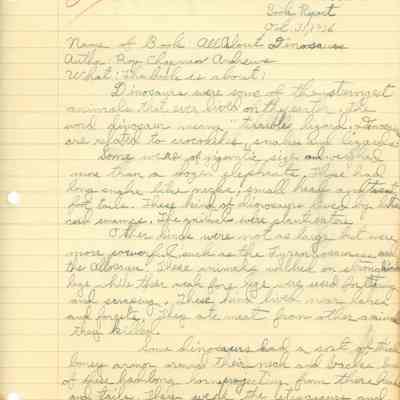 Book Report
Name of Book: All About Dinosaurs
Author: Roy Chapman Andrews
What: The book is about:
Dinosaurs were some of the strangest
animals that ever lived on the earth, the
word dinosaur means "terrible lizard"
are related to crocodiles, snakes and lizards.
Some were of gigantic size and weighed
more than a dozen elephants. These had
long snake like necks, small heads and
tails. These kind of dinosaurs lived by
and swamps. The animals were plant eaters
Other kinds were not as large but were
more powerful such as the Tyrannosaurus and
the Allosaur. These animals walked on strong hind
legs while their weak fore legs were used for
and scraping. These kind lived near lakes
and forests. They ate meat from other animals
they killed.
Some dinosaurs had a sort of thick
boney armor around their neck and backs. Some
of these had long horns projecting from there heads
and tails. They were the stegosaurs and